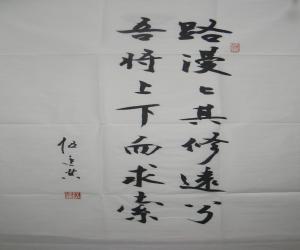 路漫〻其修远兮
吾将上下而求索